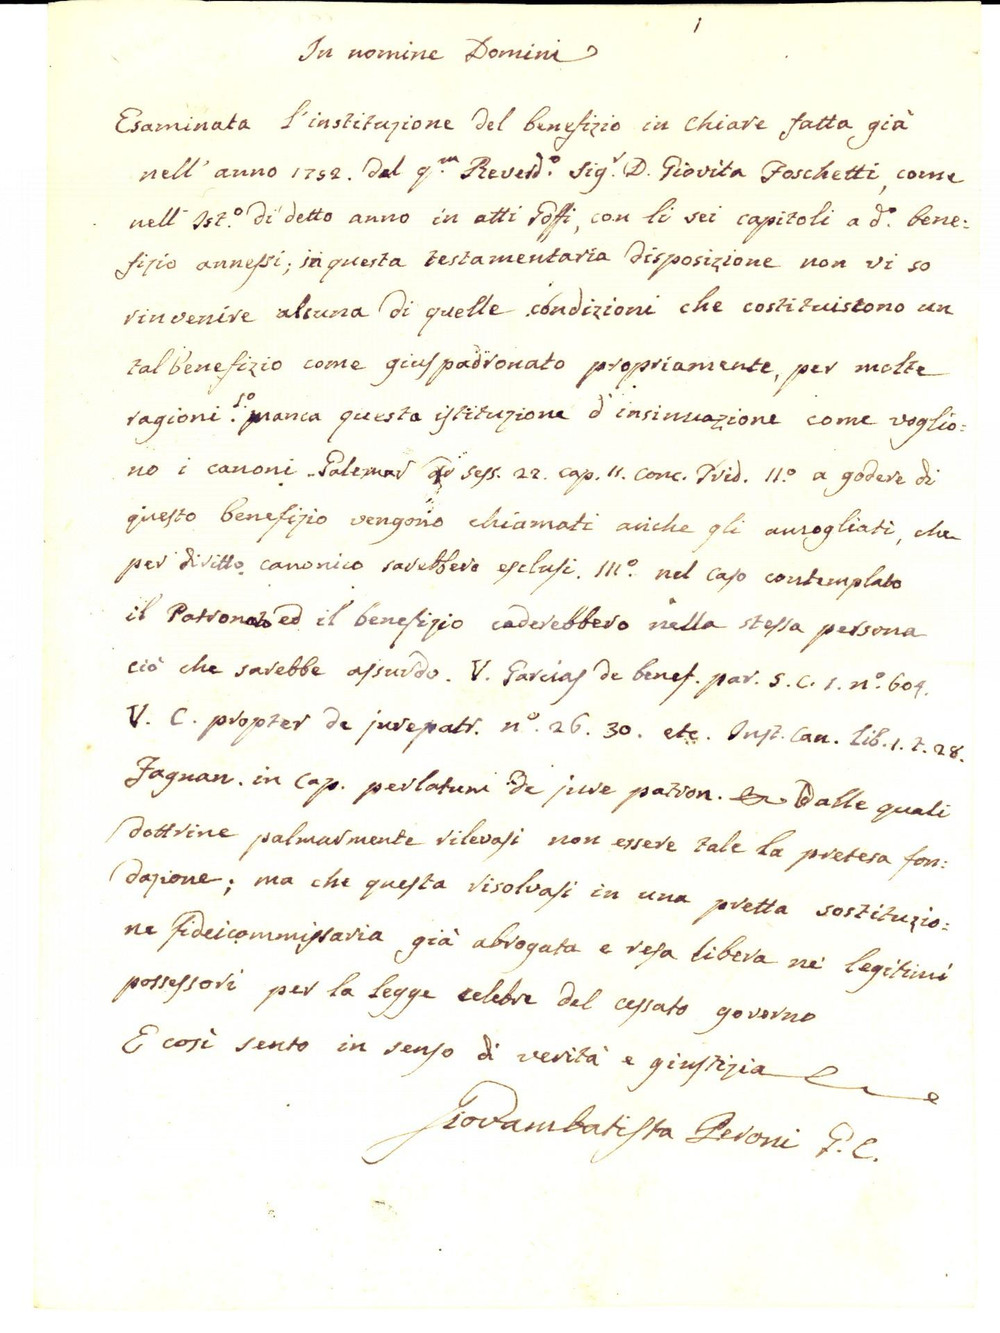 1
In nomine Domini
Esaminata l'instituzione del benefizio in Chiare fatta già
nell' anno 1752. dal q.m Reverd.o Sig.r D. Giovita Foschetti, come
nell' Ist.o di detto anno in atti, con li sei capitoli a d.o bene=
fizio annessi; in questa testamentaria disposizione non vi so
rinvenire alcuna di quelle condizioni che costituiscono un
tal benefizio come giuspadronato propriamente, per molte
ragioni. 1.o manca questa istituzione d'insinuazione come voglio=
no i canoni sess. 22. cap. 11. Conc. Trid. II.o a godere di
questo benefizio vengono chiamati anche gli amogliati, che
per diritto canonico sarebbero esclusi. III.o nel caso contemplato
il Patronato ed il benefizio caderebbero nella stessa persona
ciò che sarebbe assurdo. V. Garcias de benef. par. 5. C. 1. n.o 609.
V. C. propter de jurepatr. n.o 26. 30. etc. Inst. Can. Lib. 1. t. 28.
Fagnan. in Cap. perlatum de jure patron. Dalle quali
dottrine palmarmente rilevasi non essere tale la pretesa fon=
dazione; ma che questa risolvasi in una pretta sostituzio=
ne fideicommissaria già abrogata e resa libera ne' legitimi
possessori per la legge celebre del cessato governo
E così sento in senso di verità e giustizia
Giovambatista Peroni G. C.